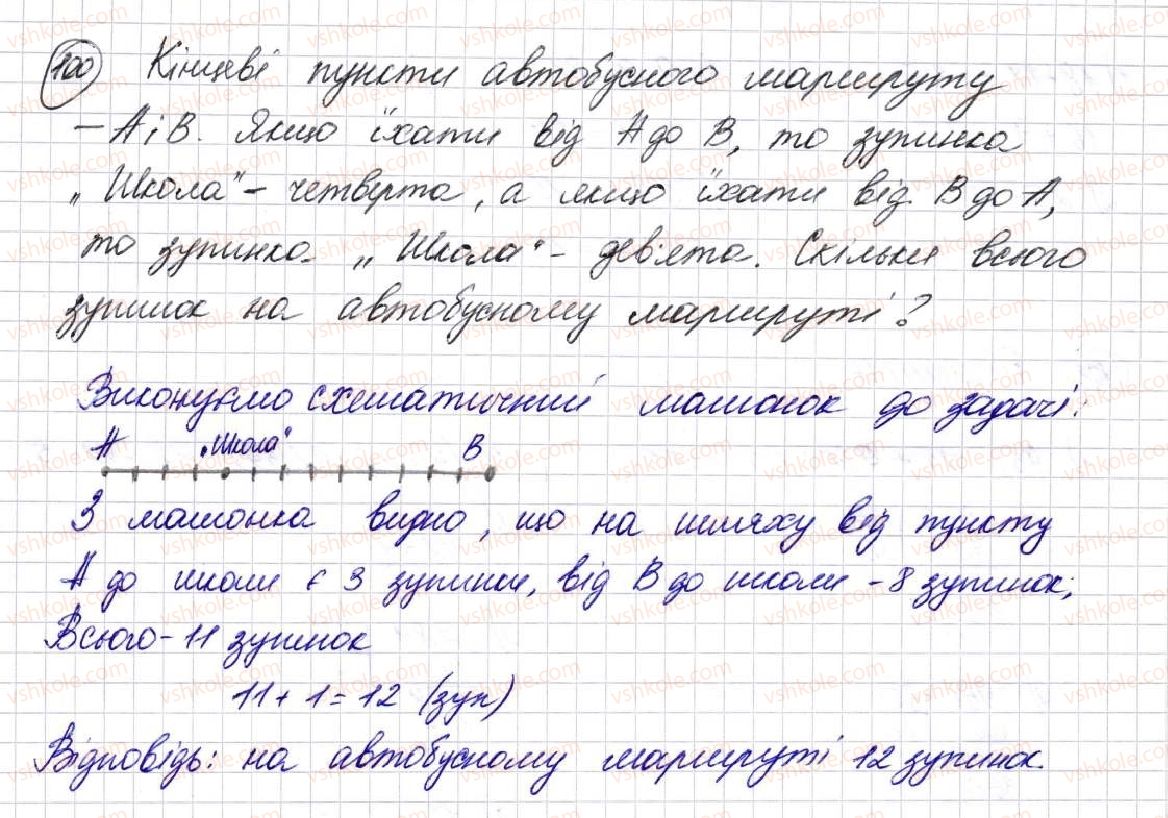 100 Кінцеві пункти автобусного маршруту
– А і В. Якщо їхати від А до В, то зупинка
„Школа" – четверта, а якщо їхати від В до А,
то зупинка „Школа" – дев'ята. Скільки всього
зупинок на автобусному маршруті?
Виконуємо схематичний малюнок до задачі:
А „Школа" В
З малюнка видно, що на шляху від пункту
А до школи є 3 зупинки, від В до школи – 8 зупинок;
Всього – 11 зупинок
11 + 1 = 12 (зуп)
Відповідь: на автобусному маршруті 12 зупинок.